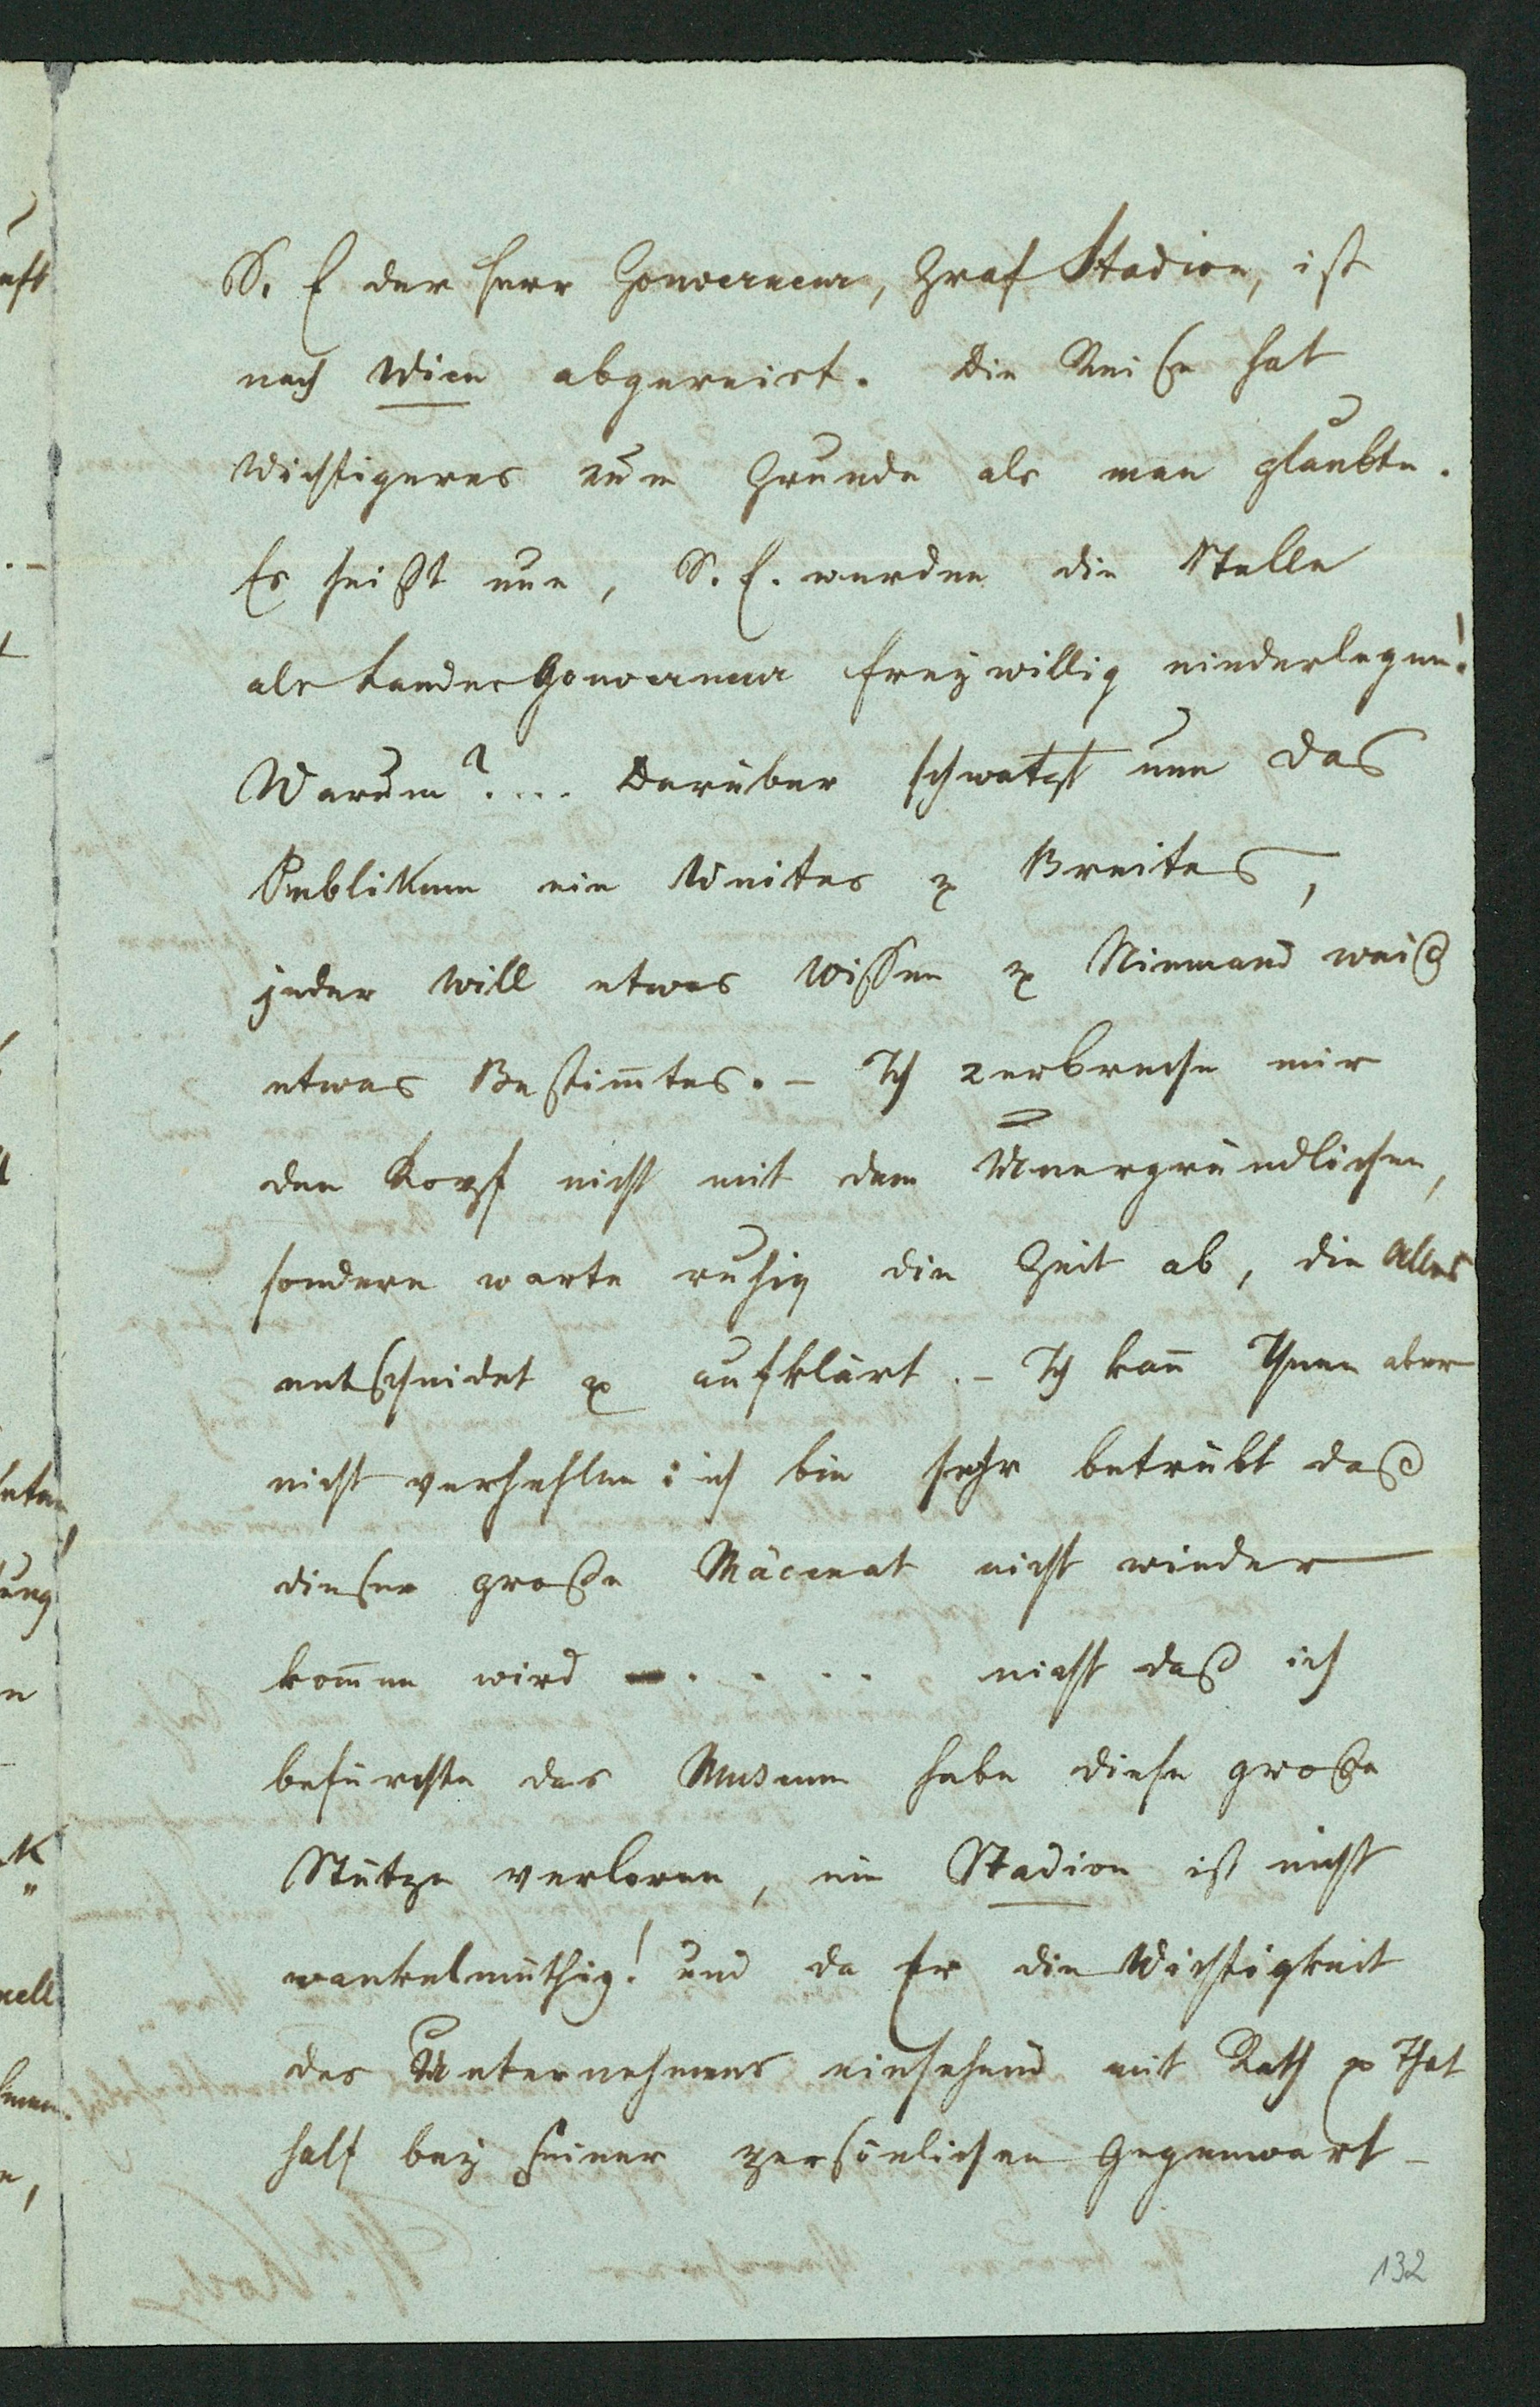 S. E der Herr Gouverneur, Graf Stadion, ist
nach Wien abgereist. Die Reise hat
Wichtigeres zum Grunde als man glaubte.
Es heißt nun, S. E. werden die Stelle
als Landes Gouverneur freywillig niederlegen!
Warum? .... Darüber schwatzt nun das
Publikum ein Weites & Breites,
jeder will etwas wissen & Niemand weiß
etwas Bestim̅tes. – Ich zerbreche mir
den Kopf nicht mit dem Unergründlichen,
sondern warte ruhig die Zeit ab, die Alles
entscheidet & aufklärt. – Ich kan̅ Ihnen aber
nicht verhehlen: ich bin sehr betrübt daß
dieser große Mäcenat nicht wieder
kom̅en wird – . . . . . nicht daß ich
befürchte das Museum habe diese große
Stütze verloren, ein Stadion ist nicht
wankelmüthig! und da Er die Wichtigkeit
des Unternehmens einsehend mit Rath & That
half bey seiner persönlichen Gegenwart –
132